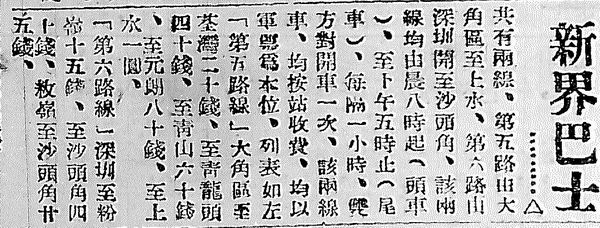 新界巴士
共有兩線、第五路由大
角區至上水、第六路由
深圳開至沙頭角、該兩
線均由晨八時起(頭車
)、至下午五時止(尾
車)、每隔一小時、雙
方對開車一次、該兩線
車、均按站收費、均以
軍票為本位、列表如左
「第五路線」大角區至
荃灣二十錢、至青龍頭
四十錢、至青山六十錢
、至元朗八十錢、至上
水一圓、
「第六路線」深圳至粉
嶺十五錢、至沙頭角四
十錢、敉嶺至沙頭角廿
五錢、